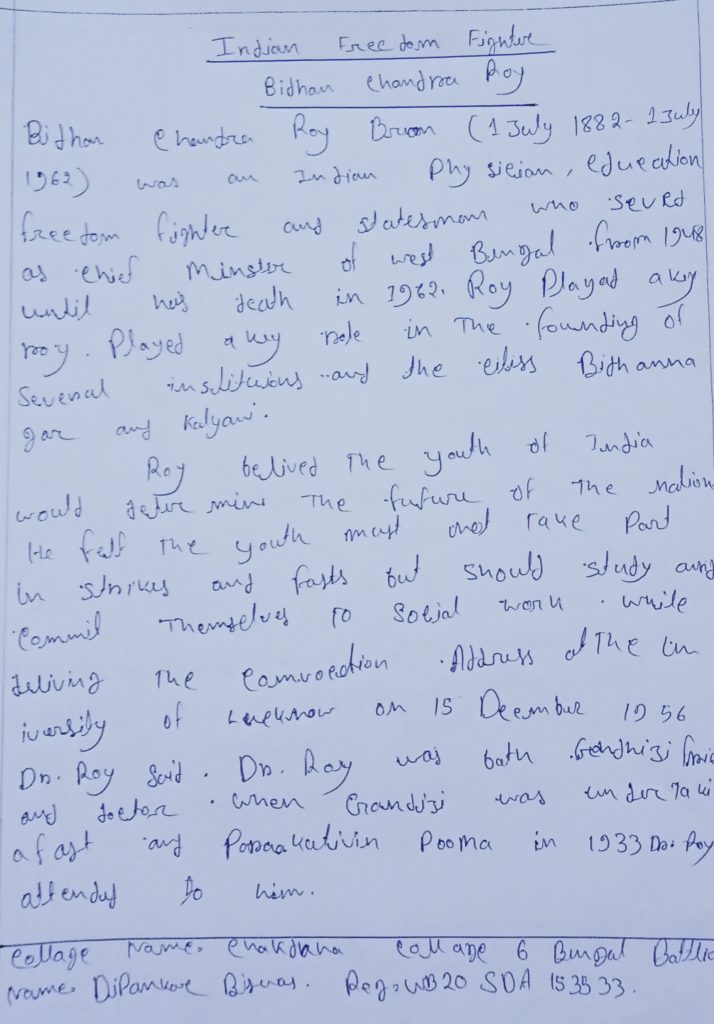 Indian Freedom Fighter
Bidhan Chandra Roy
Bidhan Chandra Roy (1 July 1882- 1 July
1962) was an Indian Physician, education
freedom fighter and statesman who seved
as chief Minster of west Bengal from 1948
until his death in 1962. Roy Played a key
roy. Played a key role in The founding of
Several and the Bidhanna
gar and Kalyani.
Roy belived The youth of India
would determine The future of The Nation
He felt The youth must not Take Part
in strikes and fasts but should study and
Commit Themselves To Social work. while
The Address at The Un
iversity of Lucknow on 15 1956
Dr. Roy Said. Dr. Roy was bath
and doctor. when was
a fast and in 1933 Dr. Roy
attended To him.
Collage Name, Chakdaha Collage 6 Bengal
Name, DiPankar Biswas. Reg, WB20 SDA 153533.